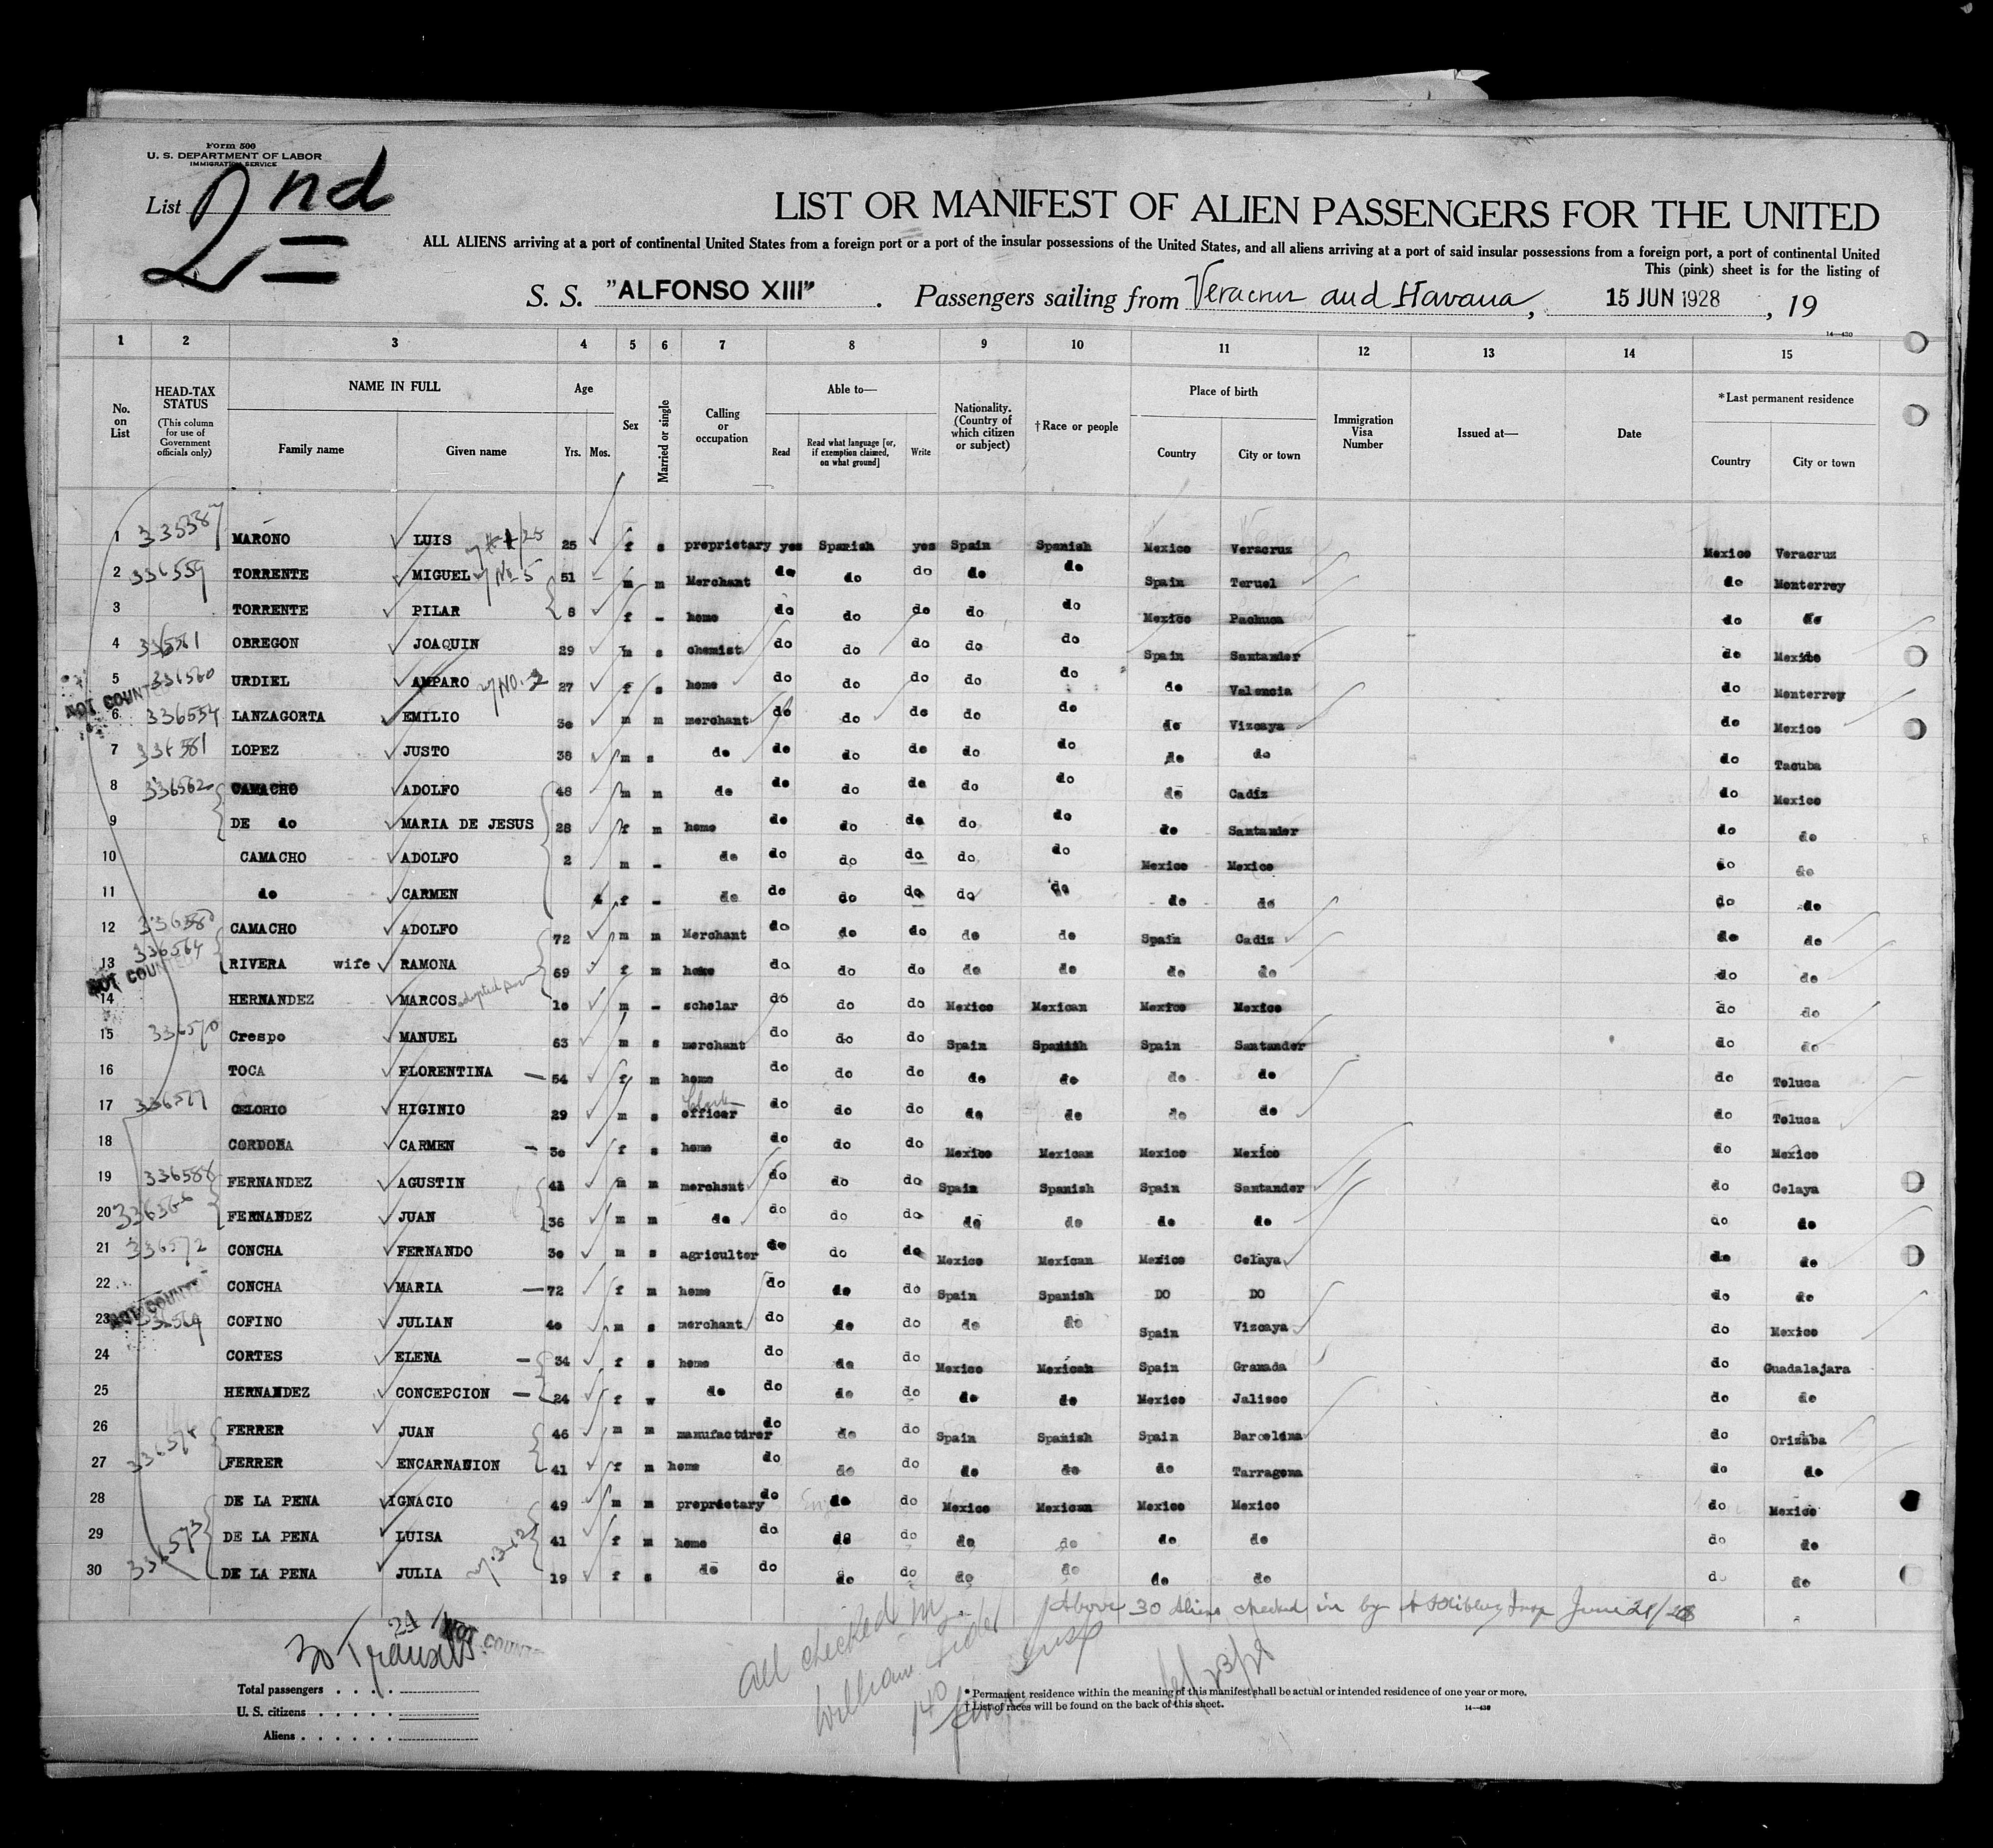 Form 500
U. S. DEPARTMENT OF LABOR
IMMIGRATION SERVICE
List 2nd
2
LIST OR MANIFEST OF ALIEN PASSENGERS FOR THE UNITED
ALL ALIENS arriving at a port of continental United States from a foreign port or a port of the insular possessions of the United States, and all aliens arriving at a port of said insular possessions from a foreign port, a port of continental United
This (pink) sheet is for the listing of
S. S. "ALFONSO XIII". Passengers sailing from Veracruz and Havana, 15 JUN 1928, 19
14—430
1 2 3 4 5 6 7 8 9 10 11 12 13 14 15
No. on List
HEAD-TAX STATUS (This column for use of Government officials only)
NAME IN FULL
Family name Given name
Age
Yrs. Mos.
Sex
Married or single
Calling or occupation
Able to—
Read Read what language [or, if exemption claimed, on what ground] Write
Nationality. (Country of which citizen or subject)
†Race or people
Place of birth
Country City or town
Immigration Visa Number
Issued at—
Date
*Last permanent residence
Country City or town
1 335387 MARONO LUIS 25 f s proprietary yes Spanish yes Spain Spanish Mexico Veracruz Mexico Veracruz
2 336559 TORRENTE MIGUEL No 5 51 m m Merchant do do do do do Spain Teruel do Monterrey
3 TORRENTE PILAR 8 f - home do do do do do Mexico Pachuca do do
4 336561 OBREGON JOAQUIN 29 m s chemist do do do do do Spain Santander do Mexico
5 336560 URDIEL AMPARO NO. 2 27 f s home do do do do do do Valencia do Monterrey
NOT COUNT
6 336554 LANZAGORTA EMILIO 30 m m merchant do do do do do do Vizcaya do Mexico
7 336581 LOPEZ JUSTO 38 m s do do do do do do do do do Tacuba
8 336562 CAMACHO ADOLFO 48 m m do do do do do do do Cadiz do Mexico
9 DE do MARIA DE JESUS 28 f m home do do do do do do Santander do do
10 CAMACHO ADOLFO 2 m - do do do do do do Mexico Mexico do do
11 do CARMEN 4 f - do do do do do do do do do do
12 336580 CAMACHO ADOLFO 72 m m Merchant do do do do do Spain Cadiz do do
13 336564 RIVERA wife RAMONA 69 f m home do do do do do do do do do
NOT COUNTED
14 HERNANDEZ MARCOS adopted son 10 m - scholar do do do Mexico Mexican Mexico Mexico do do
15 336570 Crespo MANUEL 63 m s merchant do do do Spain Spanish Spain Santander do do
16 TOCA FLORENTINA — 54 f m home do do do do do do do do Toluca
17 336577 CELORIO HIGINIO 29 m s officer Clerk do do do do do do do do Toluca
18 CORDONA CARMEN — 30 f s home do do do Mexico Mexican Mexico Mexico do Mexico
19 336588 FERNANDEZ AGUSTIN 41 m m merchant do do do Spain Spanish Spain Santander do Celaya
20 336566 FERNANDEZ JUAN 36 m m do do do do do do do do do do
21 336572 CONCHA FERNANDO 30 m s agricultor do do do Mexico Mexican Mexico Celaya do do
22 CONCHA MARIA — 72 f m home do do do Spain Spanish DO DO do do
NOT COUNTED
23 336569 COFINO JULIAN 40 m s merchant do do do do do Spain Vizcaya do Mexico
24 CORTES ELENA — 34 f s home do do do Mexico Mexican Spain Granada do Guadalajara
25 HERNANDEZ CONCEPCION — 24 f w do do do do do do Mexico Jalisco do do
26 336574 FERRER JUAN 46 m m manufacturer do do do Spain Spanish Spain Barcelona do Orizaba
27 FERRER ENCARNANION 41 f m home do do do do do do Tarragona do do
28 DE LA PENA IGNACIO 49 m m proprietary do do do Mexico Mexican Mexico Mexico do Mexico
29 336573 DE LA PENA LUISA 41 f m home do do do do do do do do do
30 DE LA PENA JULIA 19 f s do do do do do do do do do do
Above 30 Aliens checked in by Insp June 21/28
30 Transits
NOT COUNTE
All checked in
William Fidel
Insp
Total passengers . . . .
U. S. citizens . . . . . .
Aliens . . . . . .
* Permanent residence within the meaning of this manifest shall be actual or intended residence of one year or more.
† List of races will be found on the back of this sheet.
14—430